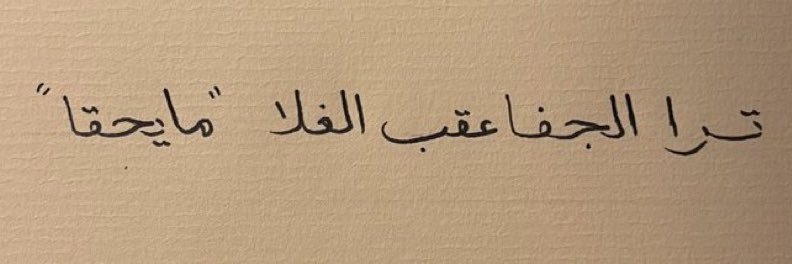 ترا الجفا عقب الغلا "مايحقا"